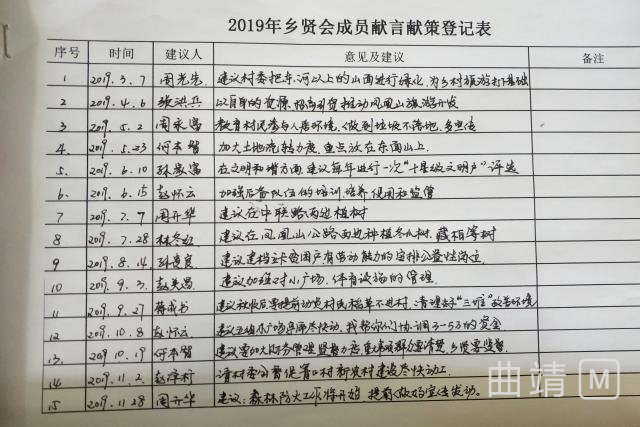 2019年乡贤会成员献言献策登记表
序号 时间 建议人 意见及建议 备注
1 2019.3.7 周光先 建议村委把东河以上的山面进行绿化,为乡村旅游打下基础
2 2019.4.6 张洪兵 以自身的资源,招商引资推动凤凰山旅游开发
3 2019.5.2 周永富 教育村民参与人居环境,做到垃圾不落地,多宣传
4. 2019.5.23 何本智 加大土地流转力度,重点放在东面山上.
5 2019.6.10 在文明和谐方面,建议每年进行一次“十星级文明户”评选
6. 2019.6.15 赵怀云 加强后备队伍的培训,培养使用和监管
7 2019.7.7 周开华 建议在中联路两边植树
8 2019.7.28 林冬 建议在凤凰山公路两边种植冬瓜树、藏柏等树
9 2019.8.14 孙 良 建议建档立卡贫困户有劳动能力的安排公益性岗位
10 2019.9.3. 建议加强对小广场、体育设施的管理.
11 2019.9.27 蒋成书 建议秋收后要提前动员村民稻草不进村,清理好“三堆”改善环境
12 2019.10.8 赵怀云 建议 广场 尽快动,我帮你们协调3-5万的资金
13. 2019.10.19 何本智 建议要加大财务管理监督力度,重大事项群众要清楚,乡贤要监督.
14 2019.11.2 请村委会督促 村新农村建设尽快动工.
15 2019.11.28 周开华 建议:森林防火工作将开始 提前做好宣传发动.
曲靖 M